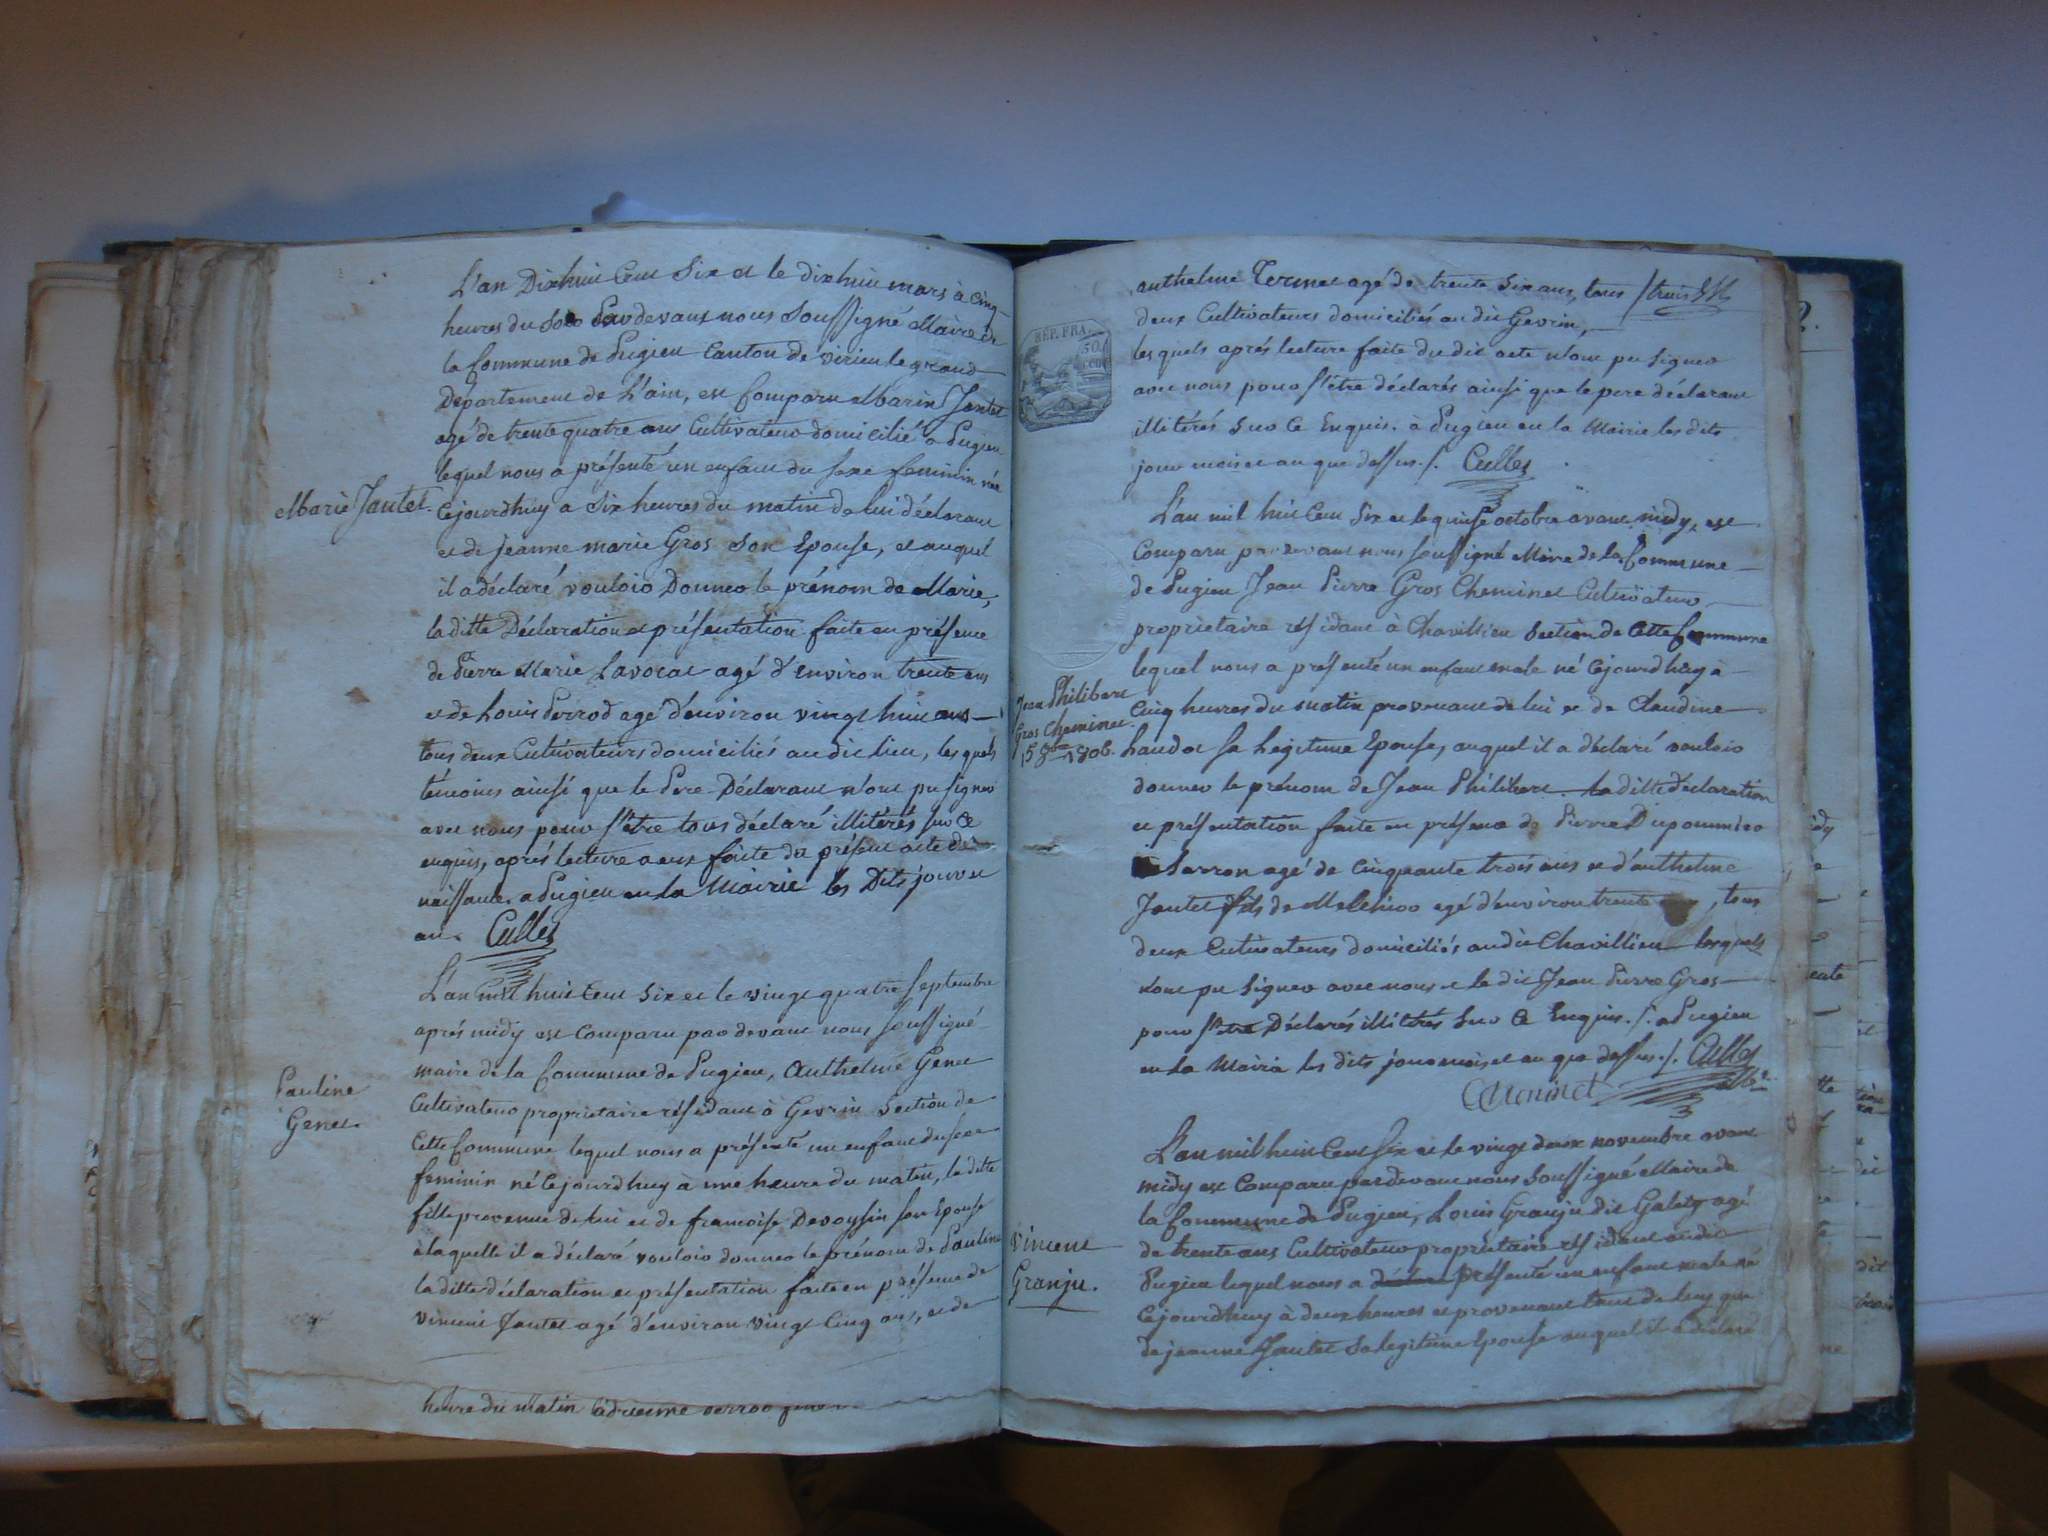 L'an Dixhuit Cent Six et le dixhuit mars à cinq
heures du soir Pardevant nous Soussigné Maire de
la Commune de Pugieu Canton de virieu le grand
Département de L'ain, est Comparu Marin Jantet
agé de trente quatre ans Cultivateur domicilié a Pugieu
lequel nous a présenté un enfant du sexe feminin née
Marie Jantet.
Cejourdhuy a Six heures du matin de lui déclarant
et de jeanne marie Gros son Epouse, et auquel
il a déclaré vouloir Donner le prénom de Marie,
la ditte Déclaration et présentation faite en présence
de Pierre Marie Lavocat agé d'environ trente ans
et de Louis Perrod agé d'environ vingt huit ans
tous deux Cultivateurs domiciliés au dit lieu, les quels
témoins ainsi que le Pere Déclarant n'ont pu signer
avec nous pour s'être tous déclaré illitérés sur ce
enquis, aprés lecture a eux faite du présent acte de
naissance. a Pugieu en la Mairie les Dits jour et
an. Cullet
L'an mil huit Cent Six et le vingt quatre Septembre
aprés midy est Comparu par devant nous Soussigné
maire de la Commune de Pugieu, Anthelme Genet
Pauline
Genet.
Cultivateur proprietaire résidant à Gevrin Section de
Cette Commune lequel nous a présenté un enfant du sexe
feminin né Cejourdhuy à une heure du matin, la ditte
fille provenue de lui et de francoise Devoysin son Epouse
à laquelle il a déclaré vouloir donner le prénom de Pauline
la ditte déclaration et présentation faite en présence de
vincent Jantet agé d'environ vingt Cinq ans, et de
heure du matin
anthelme Termet agé de trente Six ans, tous
deux Cultivateurs domiciliés au dit Gevrin,
REP. FRA.
50.
les quels aprés lecture faite du dit acte n'ont pu signer
avec nous pour s'être déclarés ainsi que le pere déclarant
illitérés sur ce Enquis. à Pugieu en la Mairie les dits
jour mois et an que dessus./. Cullet
L'an mil huit Cent Six et le quinse octobre avant midy, est
Comparu par devant nous soussigné Maire de la Commune
de Pugieu Jean Pierre Gros Cheminet Cultivateur
proprietaire résidant à Chavillieu Section de Cette Commune
lequel nous a présenté un enfant male né Cejourdhuy à
Jean Philibert
Gros Cheminet
15 8bre 1806.
Cinq heures du matin provenant de lui et de Claudine
sa Legitime Epouse, auquel il a déclaré vouloir
donner le prénom de Jean Philibert. La ditte déclaration
et présentation faite en présence de Pierre
Sarron agé de Cinquante trois ans et d'anthelme
Jantet fils de Melchior agé d'environ trente , tous
deux Cultivateurs domiciliés au dit Chavillieu lesquels
n'ont pu Signer avec nous et le dit Jean Pierre Gros
pour s'être Déclarés illitérés sur ce Enquis./. a Pugieu
en La Mairie les dits jour mois et an que dessus./. Cullet
L'an mil huit Cent Six et le vingt deux novembre avant
midy est Comparu par devant nous Soussigné Maire de
la Commune de Pugieu, Louis Granju dit Galety agé
Vincent
Granju.
de trente ans Cultivateur proprietaire résidant au dit
Pugieu lequel nous a présenté un enfant male né
Cejourdhuy à deux heures et provenant tant de luy que
de jeanne Jantet Sa legitime Epouse auquel il a déclaré